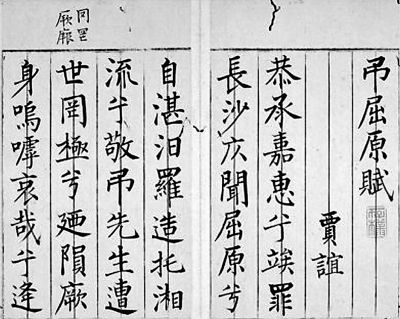 弔屈原賦
賈誼
恭承嘉惠兮竢罪
長沙仄聞屈原兮
自湛汨羅造托湘
流兮敬弔先生遭
世罔極兮廼隕厥
身嗚嘑哀哉兮逢